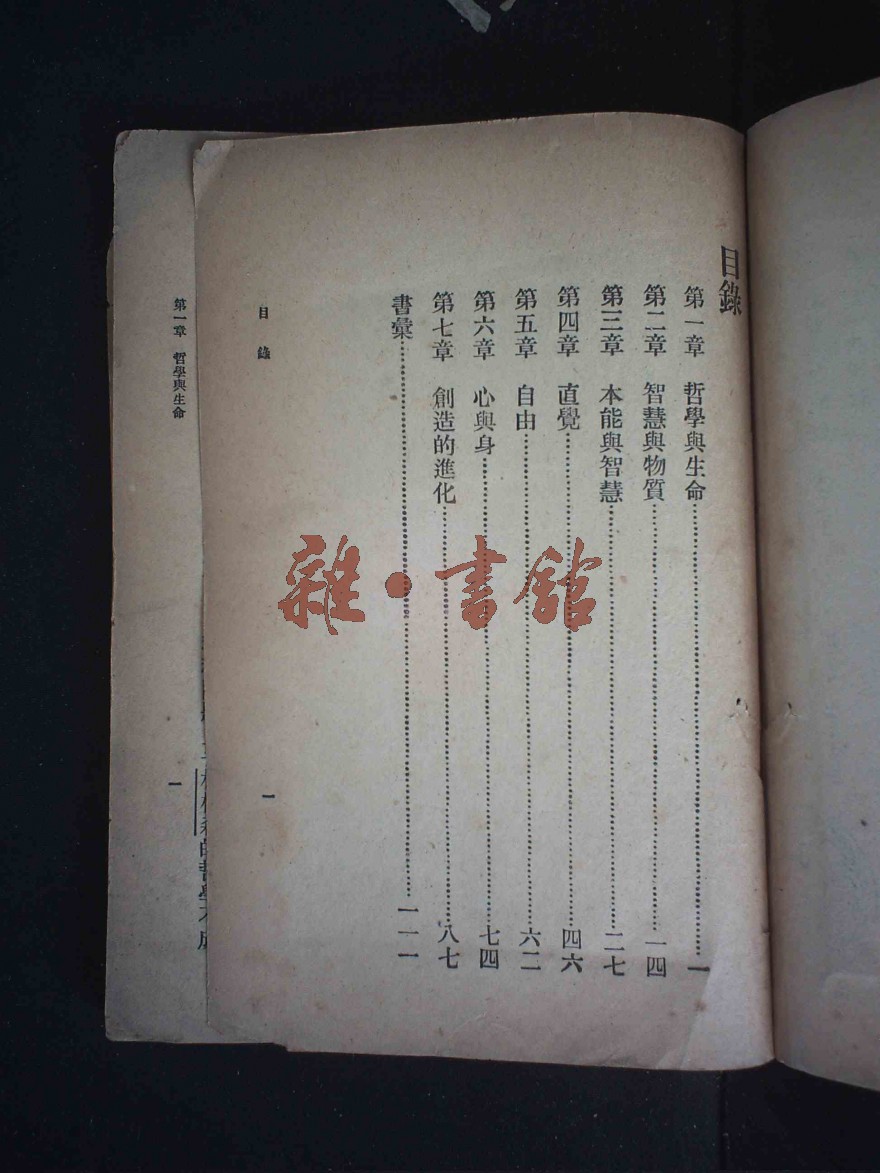 目錄
第一章 哲學與生命……一
第二章 智慧與物質……一四
第三章 本能與智慧……二七
第四章 直覺……四六
第五章 自由……六二
第六章 心與身……七四
第七章 創造的進化……八七
書彙……一一一
目錄
一
雜·書館
的哲學
第一章 哲學與生命
一